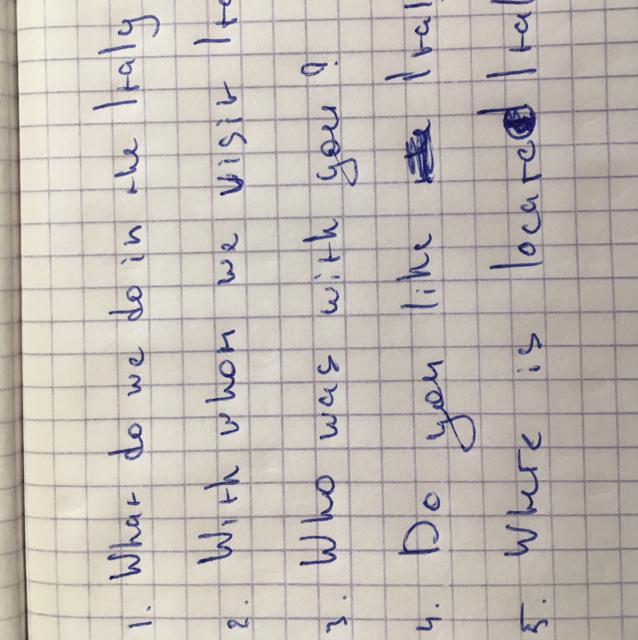 1. What do we do in the Italy
2. With whom we visit Ita
3. Who was with you?
4. Do you like Ital
5. Where is located Ital